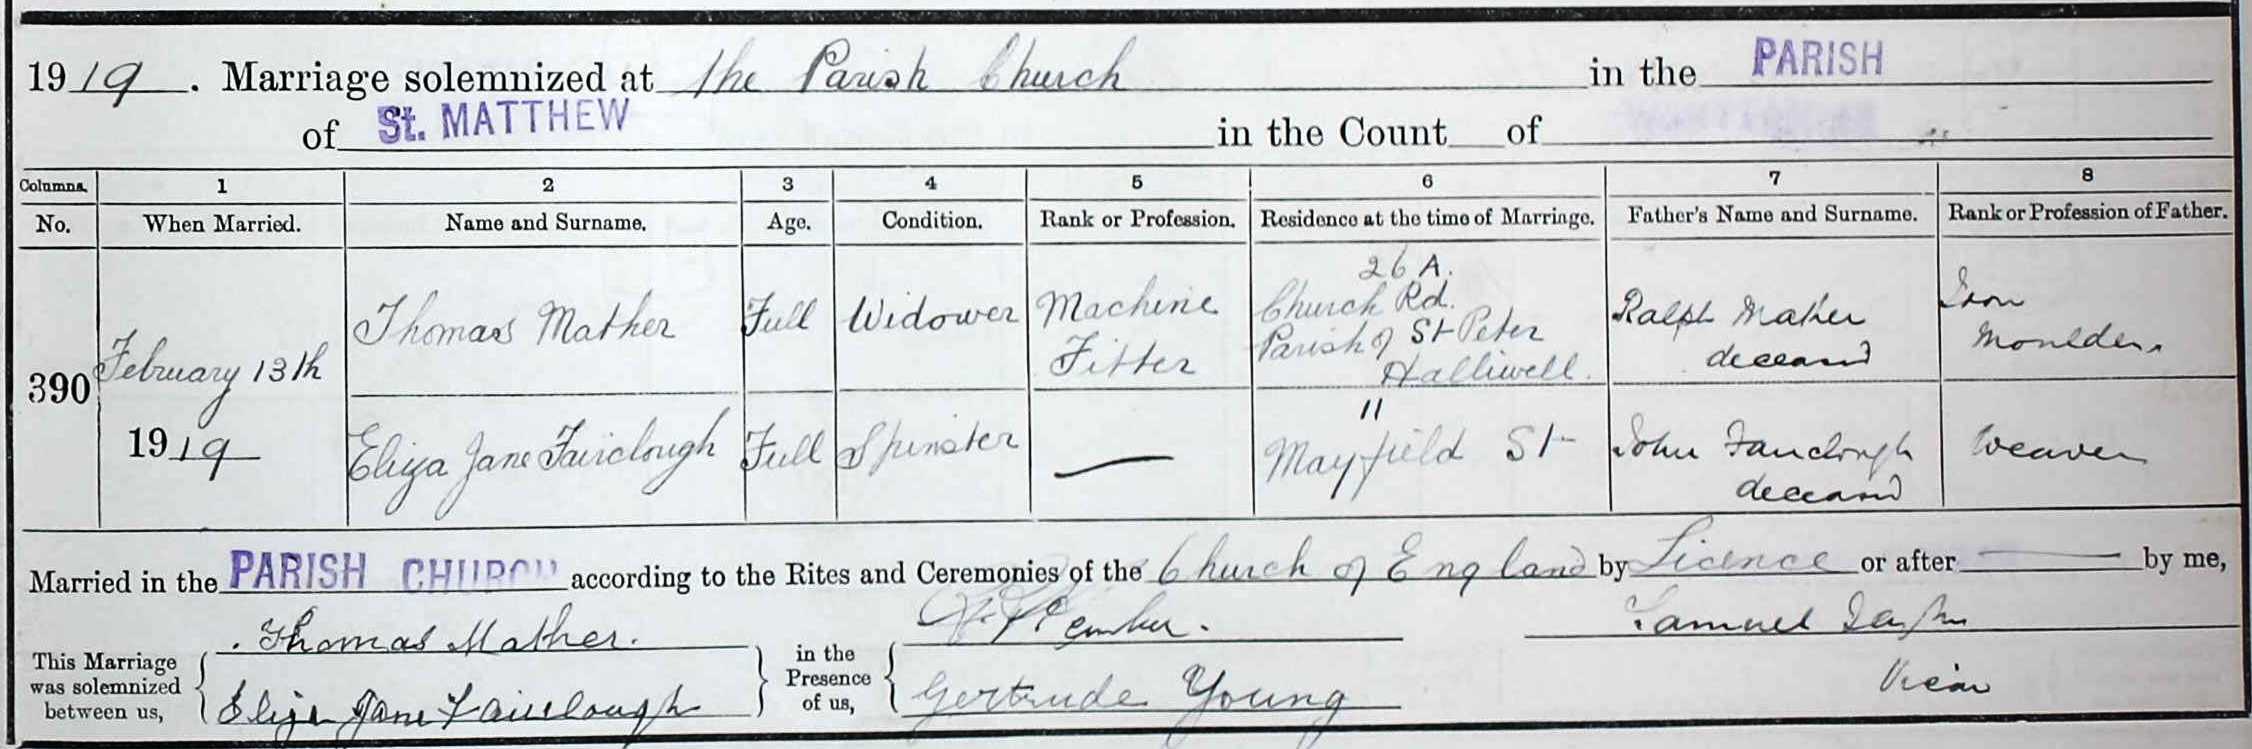 1919. Marriage solemnized at the Parish Church in the PARISH
of St. MATTHEW in the Count of
Columns. 1 2 3 4 5 6 7 8
No. When Married. Name and Surname. Age. Condition. Rank or Profession. Residence at the time of Marriage. Father's Name and Surname. Rank or Profession of Father.
390 February 13th 1919
Thomas Mather Full Widower Machine Fitter
26 A.
Church Rd.
Parish of St Peter
Halliwell.
Ralph Mather
deceased
Iron
Moulder
Eliza Jane Fairclough Full Spinster —
11
Mayfield St
John Fairclough
deceased
Weaver
Married in the PARISH CHURCH according to the Rites and Ceremonies of the Church of England by Licence or after — by me,
This Marriage was solemnized between us,
Thomas Mather.
Eliza Jane Fairclough
in the Presence of us,
Gertrude Young
Samuel
Vicar